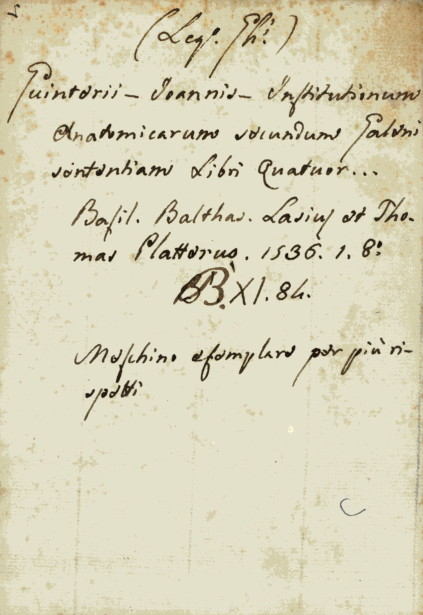 (Leg. Gh.)
Guinterii - Joannis - Institutionum
Anatomicarum secundum Galeni
sententiam Libri Quatuor...
Basil. Balthas. Lasius et Tho-
mas Platterus. 1536. 1. 8°
B. XI. 84.
Meschino esemplare per più ri-
spetti